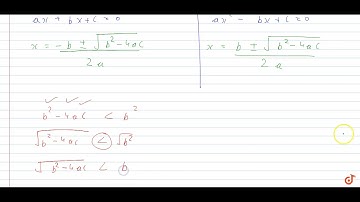 ax² + bx + c = 0
x = -b ± √b² - 4ac / 2a
ax² - bx + c = 0
x = b ± √b² - 4ac / 2a
b² - 4ac < b²
√b² - 4ac < √b²
√b² - 4ac < b